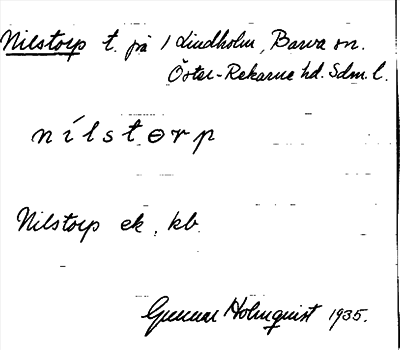 Nilstorp t. på 1 Lindholm, Barva sn.
Öster-Rekarne hd. Sdm. l.
nílstɵrp
Nilstorp ek, kb.
Gunnar Holmquist 1935.